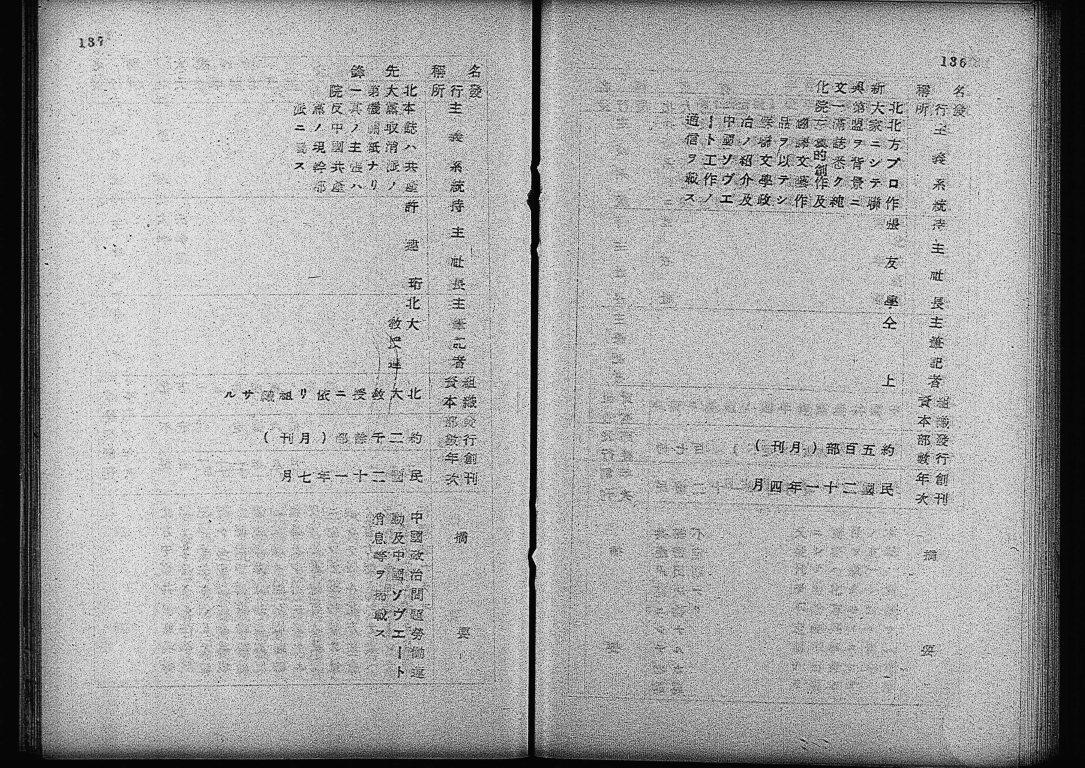 136
名稱
發行所
主義系統
持主
社長
主筆
記者
組織
資本
發行
部數
創刊
年次
摘要
新興文化
北大第一院
北方プロ作
家ニシテ聯
盟ヲ背景ニ
滿誌悉ク
的創作及
國際文藝作
品ヲ以テシ
蘇聯文學政
治ノ紹介及
中國ソヴエ
ート工作ノ
通信ヲ載ス
張友學
仝上
約五百部(月刊)
民國二十一年四月
137
名稱
發行所
主義系統
持主
社長
主筆
記者
組織
資本
發行
部數
創刊
年次
摘要
先鋒
北大第一院
本誌ハ共產
黨取消派ノ
機關紙ナリ
其ノ主張ハ
反中國共產
黨ノ現幹部
派ニ屬ス
許 珩
北大
教授連
北大教授ニ依リ組織サル
約二千餘部(月刊)
民國二十一年七月
中國政治問題勞働運
動及中國ソヴエート
消息等ヲ揭載ス